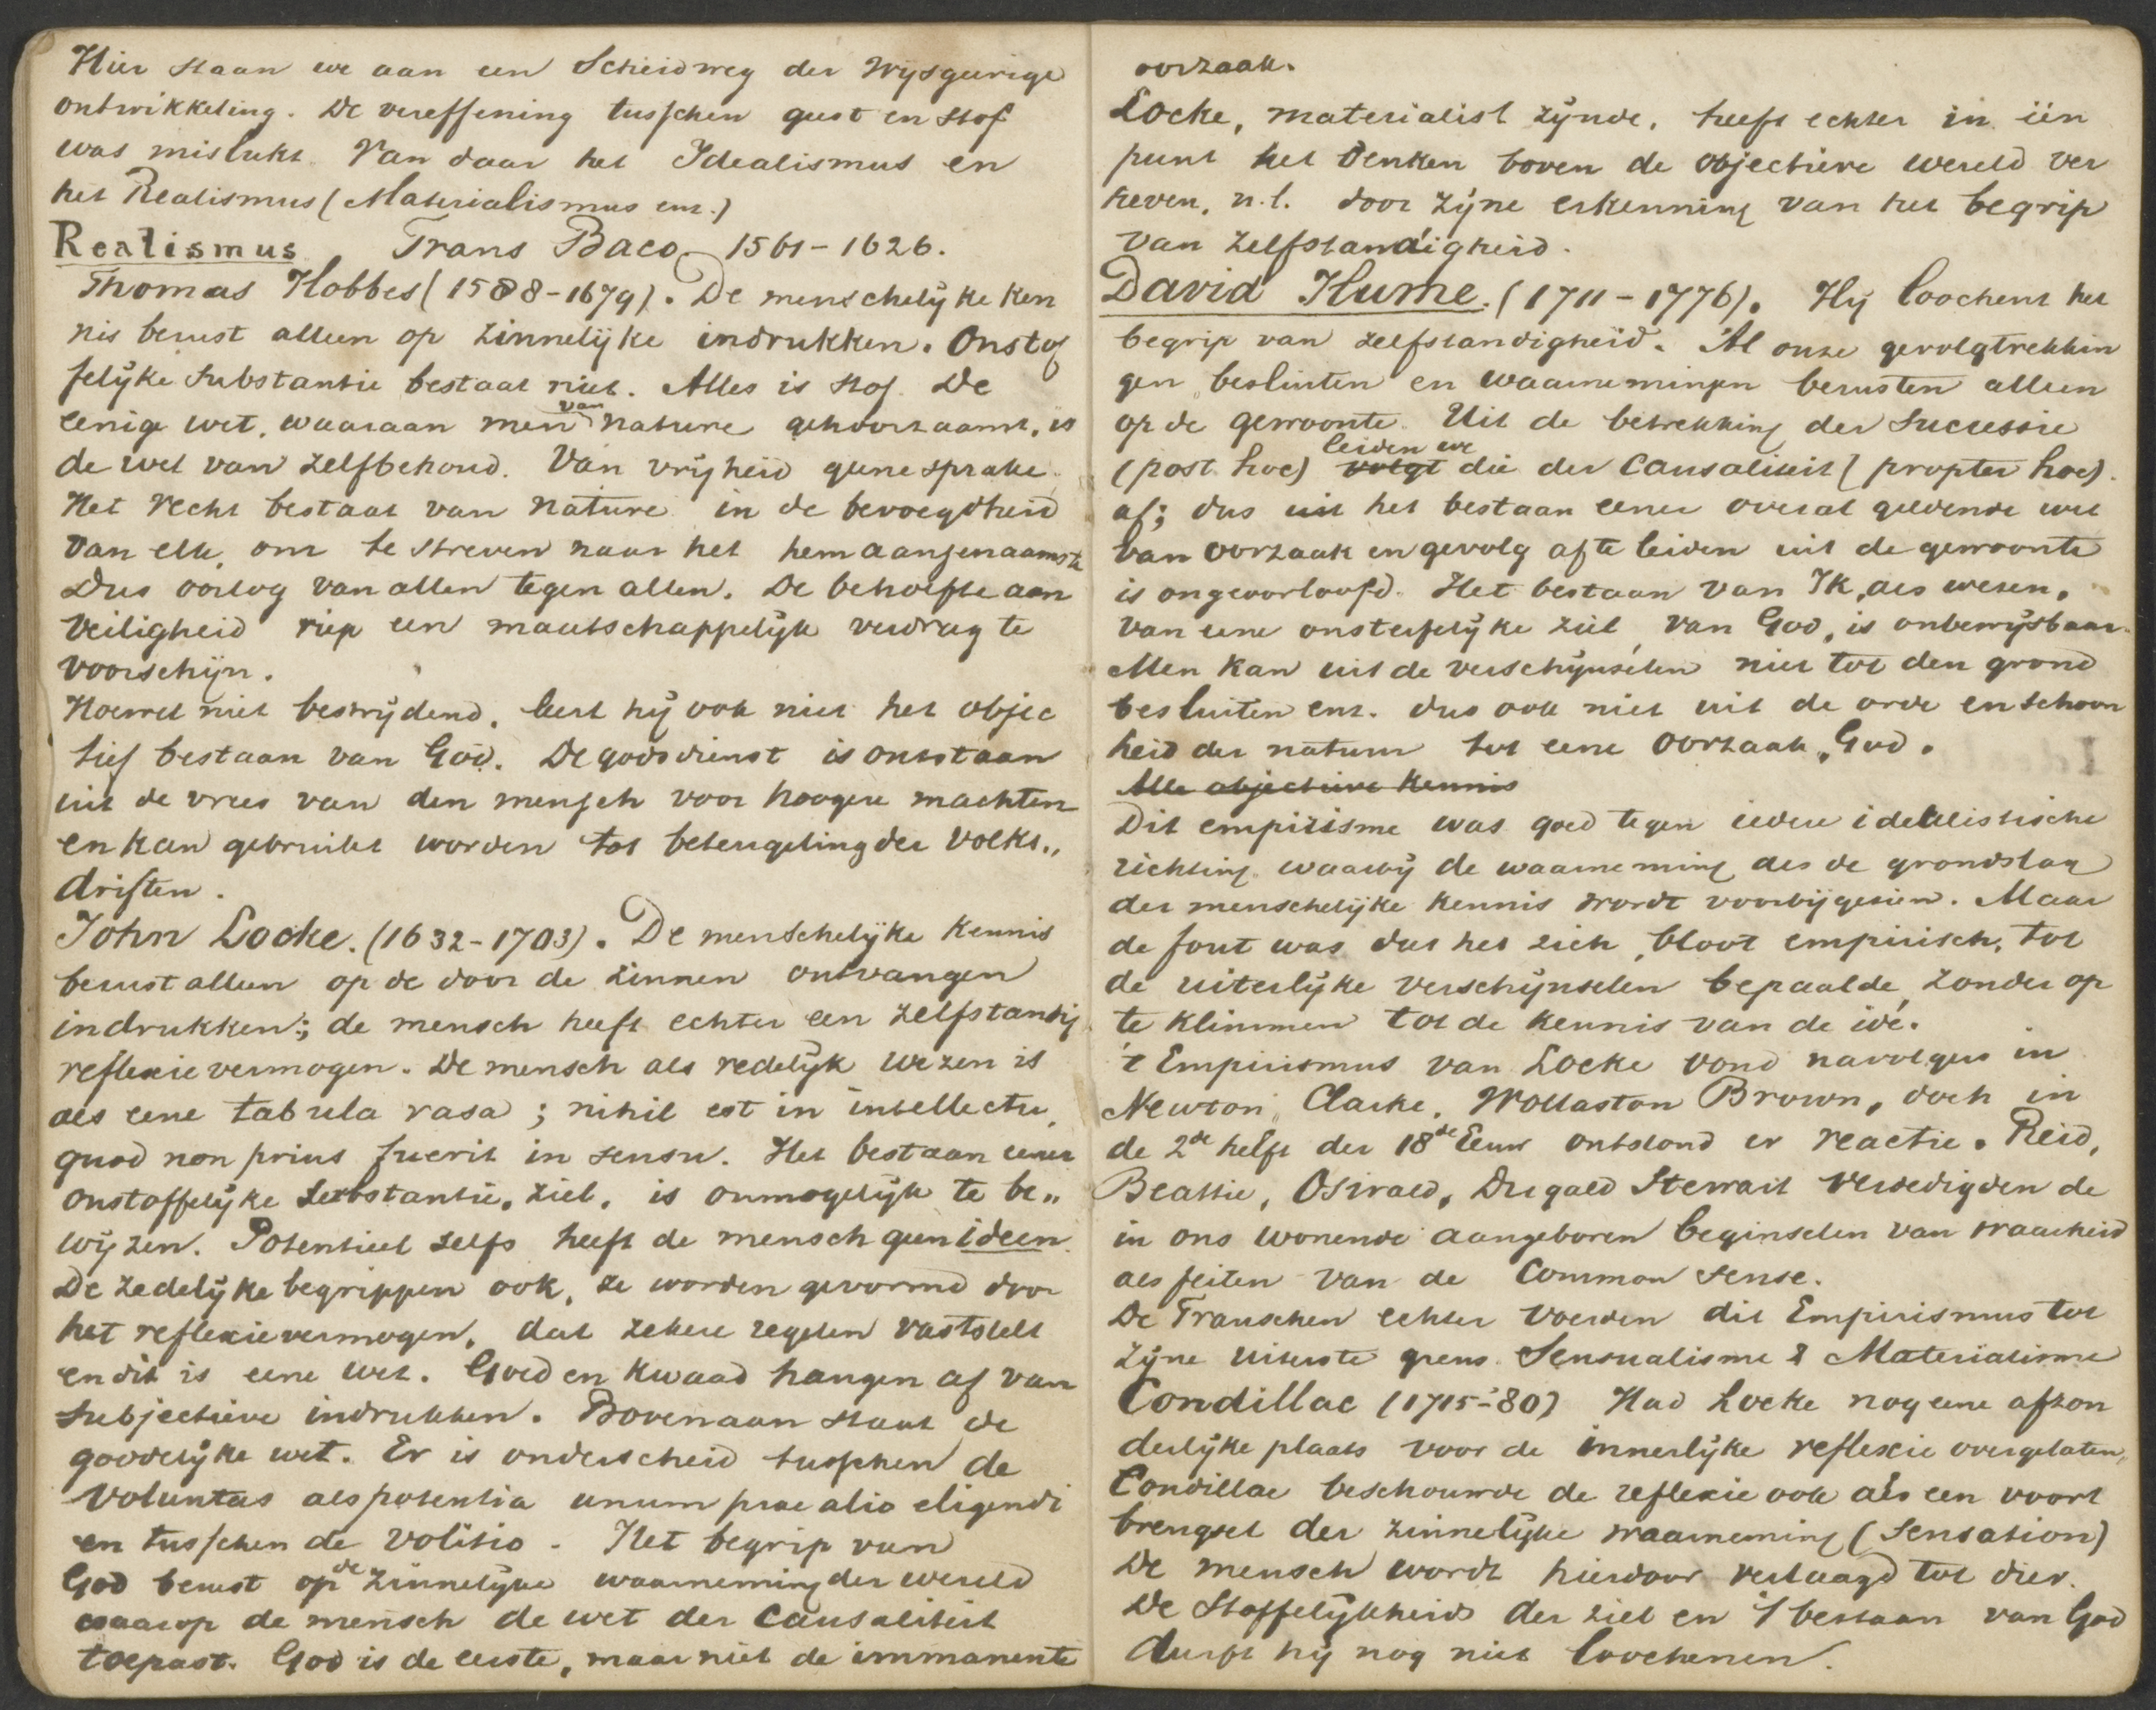 Hier staan we aan een Scheidweg der Wijsgeerige
ontwikkeling. De vereffening tusschen geest en stof
was mislukt. Van daar het Idealismus en
het Realismus (Materialismus enz.)
Realismus Frans Baco 1561-1626.
Thomas Hobbes (1588-1679). De menschelijke ken
nis berust alleen op zinnelijke indrukken. Onstof
felijke Substantie bestaat niet. Alles is stof. De
eenige wet, waaraan men van nature gehoorzaamt, is
de wet van zelfbehoud. Van vrijheid geene sprake.
Het recht bestaat van nature in de bevoegdheid
van elk, om te streven naar het hem aangenaamste
Dus oorlog van allen tegen allen. De behoefte aan
Veiligheid riep een maatschappelijk verdrag te
voorschijn.
Hoewel niet bestrijdend, leert hij ook niet het objec
tief bestaan van God. De godsdienst is ontstaan
uit de vrees van den mensch voor hoogere machten
en kan gebruikt worden tot beteugeling der volks„
driften.
John Locke. (1632-1703). De menschelijke kennis
berust alleen op de door de zinnen ontvangen
indrukken; de mensch heeft echter een zelfstandig
reflexievermogen. De mensch als redelijk wezen is
als eene tabula rasa; nihil est in intellectu,
quod non prius fuerit in sensu. Het bestaan eener
onstoffelijke Substantie, ziel, is onmogelijk te be„
wijzen. Potentieel zelfs heeft de mensch geen ideen.
De zedelijke begrippen ook, ze worden gevormd door
het reflexievermogen, dat zekere regelen vaststelt
en dit is eene wet. Goed en kwaad hangen af van
subjectieve indrukken. Bovenaan staat de
goddelijke wet. Er is onderscheid tusschen de
voluntas als potentia unum prae alio eligendi
en tusschen de volitio. Het begrip van
God berust op de zinnelijke waarneming der wereld
waarop de mensch de wet der Causaliteit
toepast. God is de eerste, maar niet de immanente
oorzaak.
Locke, materialist zijnde, heeft echter in één
punt het Denken boven de objectieve wereld ver
heven, n.l. door zijne erkenning van het begrip
van zelfstandigheid.
David Hume. (1711-1776). Hij loochent het
begrip van zelfstandigheid. Al onze gevolgtrekkin
gen, besluiten en waarnemingen berusten alleen
op de gewoonte. Uit de betrekking der Successie
(post hoc) volgt leiden we die der Causaliteit (propter hoc)
af; dus uit het bestaan eener overal geldende wet
van oorzaak en gevolg af te leiden uit de gewoonte
is ongeoorloofd. Het bestaan van Ik, als wezen,
van eene onsterfelijke ziel, van God, is onbewijsbaar.
Men kan uit de verschijnselen niet tot den grond
besluiten enz. dus ook niet uit de orde en schoon
heid der natuur tot eene oorzaak, God.
Alle objectieve kennis
Dit empirisme was goed tegen iedere idealistische
richting waarbij de waarneming als de grondslag
der menschelijke kennis wordt voorbijgezien. Maar
de fout was dat het zich, bloot empirisch, tot
de uiterlijke verschijnselen bepaalde, zonder op
te klimmen tot de kennis van de idé.
't Empirismus van Locke vond navolgers in
Newton, Clarke, Wollaston Brown, doch in
de 2de helft der 18de Eeuw ontstond er reactie. Reid,
Beattie, Oswald, Dugald Stewart verdedigden de
in ons wonende aangeboren beginselen van waarheid
als feiten van de Common sense.
De Franschen echter voerden dit Empirismus tot
zijne uiterste grens Sensualisme & Materialisme
Condillac (1715-'80) Had Locke nog eene afzon
derlijke plaats voor de innerlijke reflexie overgelaten,
Condillac beschouwde de reflexie ook als een voort
brengsel der zinnelijke waarneming (Sensation)
De mensch wordt hierdoor verlaagd tot dier.
De Stoffelijkheid der ziel en 't bestaan van God
durft hij nog niet loochenen.